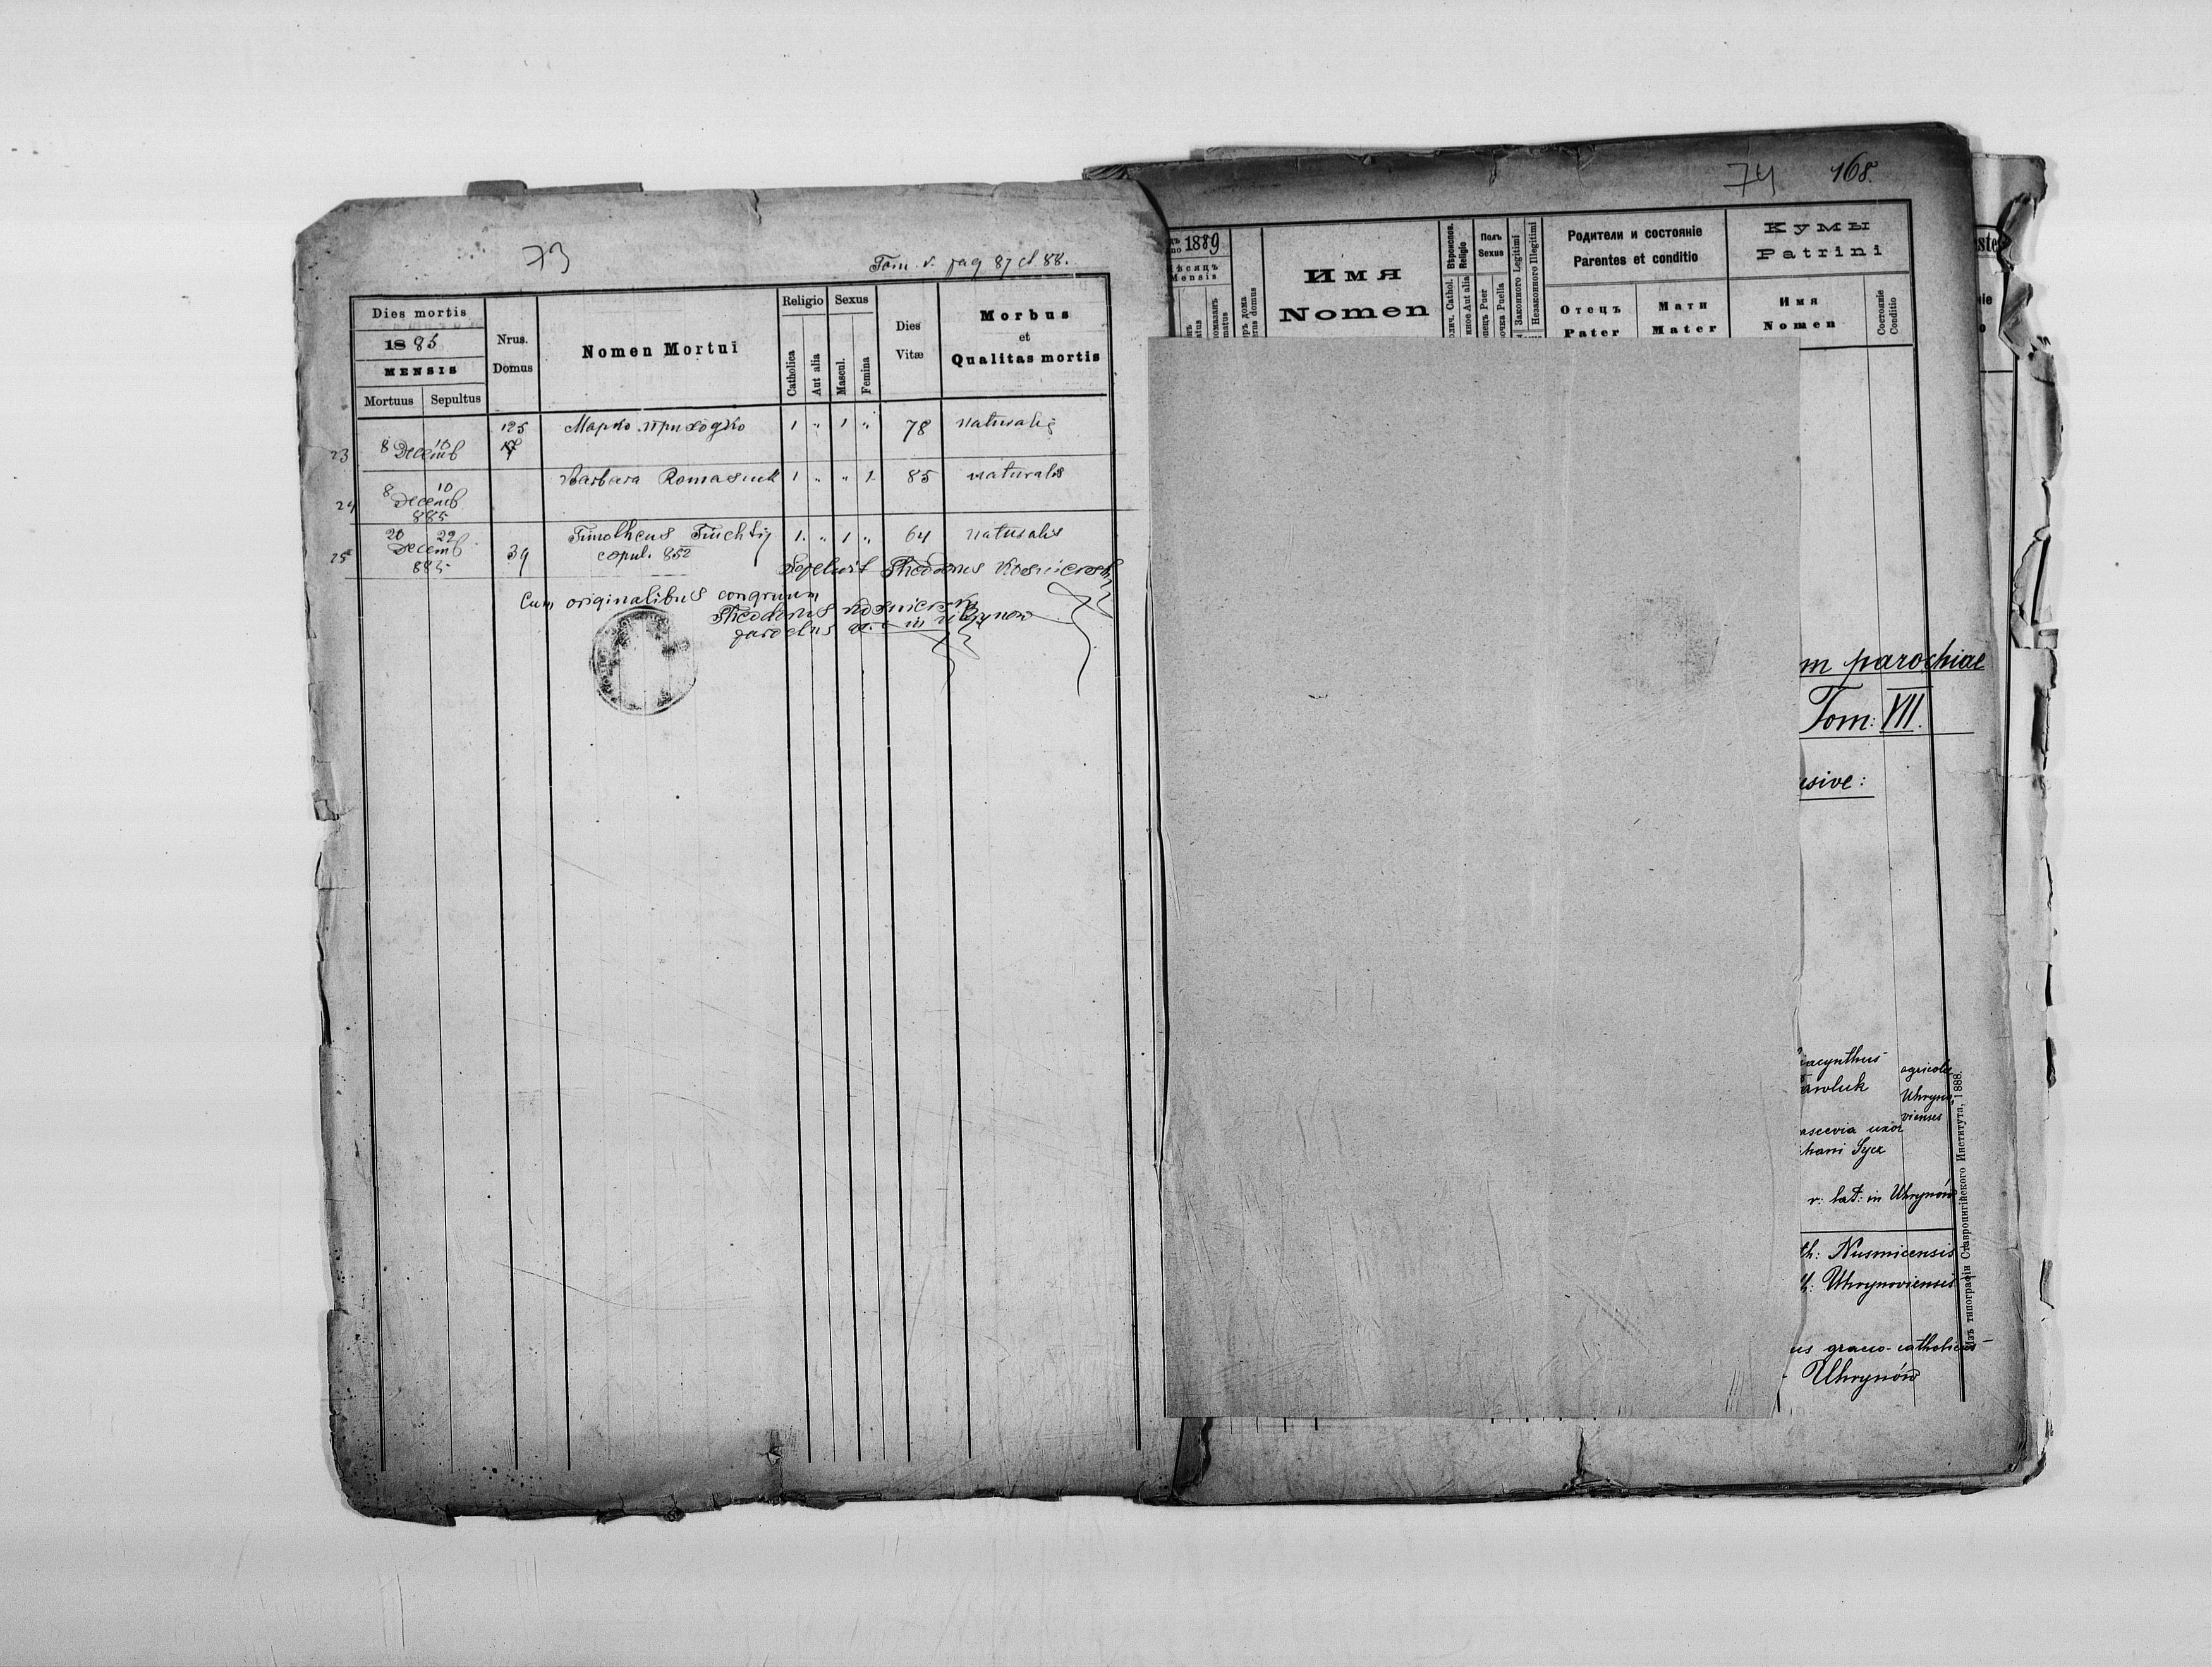 73
Tom. V. pag 87 et 88.
Dies mortis
1885
MENSIS
Mortuus Sepultus
Nrus. Domus
Nomen Mortui
Religio
Catholica Aut alia
Sexus
Mascul. Femina
Dies Vitæ
Morbus
et
Qualitas mortis
23 8 10 Decemb 125 Марко Приходко 1 " 1 " 78 naturalis
24 8 10 Decemb 885 Barbara Romasiuk 1 " " 1 85 naturalis
25 20 22 Decemb 885 39 Timotheus 1. " 1 " 64 naturalis
copul. 852
Sepelivit Theodorus
Cum originalibus congruum
Theodorus
parochus gr. c. in Uhrynow
74 168.
1889
Мѣсяцъ
Mensis
Имя
Nomen
Вѣроиспов.
Religio
Полъ
Sexus
Puer
Puella
Законного Legitimi
Незаконного Illegitimi
Родители и состояніе
Parentes et conditio
Отецъ
Pater
Мати
Mater
Кумы
Patrini
Имя
Nomen
Состояніе
Conditio
m parochiae
Tom: VII.
usive:
acynthus agricolae
awluk Uhryno-
vienses
ascevia uxor
hani Sycz
r: lat: in Uhrynów
th: Nusmicensis
h: Uhrynoviensis
us graeco-catholicus
Uhrynów
Изъ типографіи Ставропигійского Института, 1888.